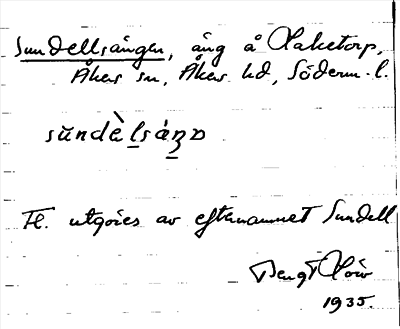 Sundellsängen, äng å Klaketorp,
Åkers sn, Åkers hd, Söderm. l.
Fl. utgöres av efternamnet Sundell
Bengt
1935.